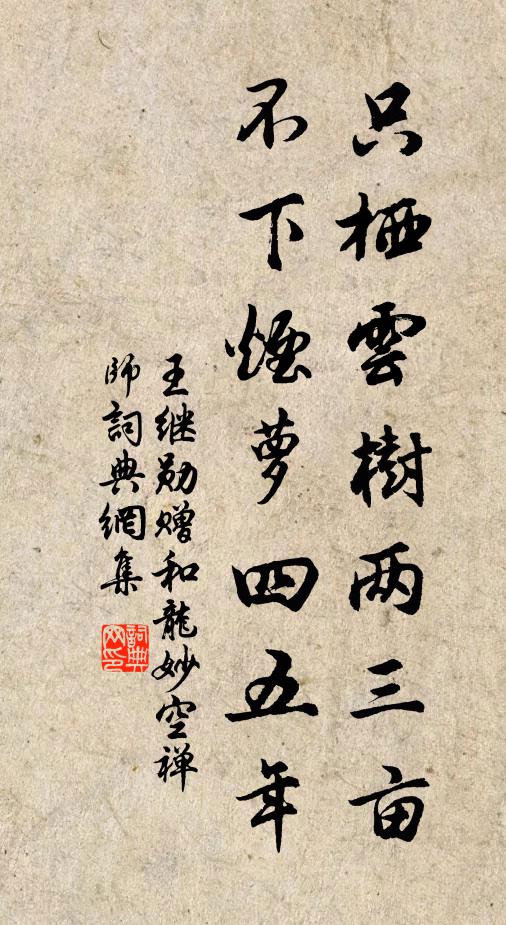 只栖雲樹两三亩
不下煙萝四五年
王继勋赠和龍妙空禅
师詞典網集
詞典
网印